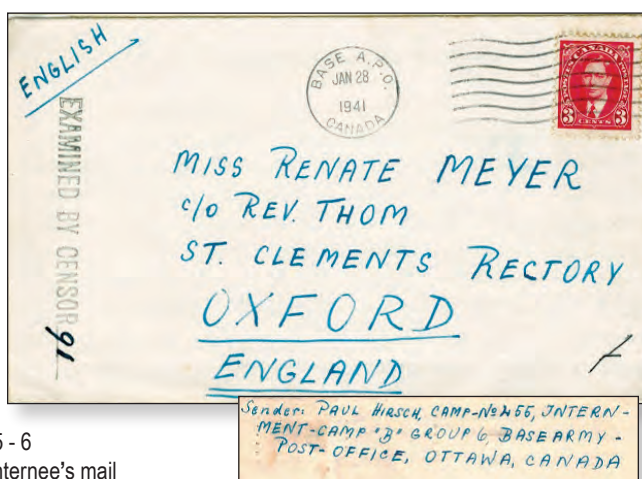 ENGLISH
EXAMINED BY CENSOR 91
BASE A.P.O.
JAN 28
1941
CANADA
POSTES CANADA POSTAGE
3 CENTS 3
MISS RENATE MEYER
c/o REV. THOM
ST. CLEMENTS RECTORY
OXFORD
ENGLAND
Sender: PAUL HIRSCH, CAMP-No 455, INTERN-
MENT-CAMP "B" GROUP 6, BASE ARMY-
POST-OFFICE, OTTAWA, CANADA
5 - 6
nternee's mail